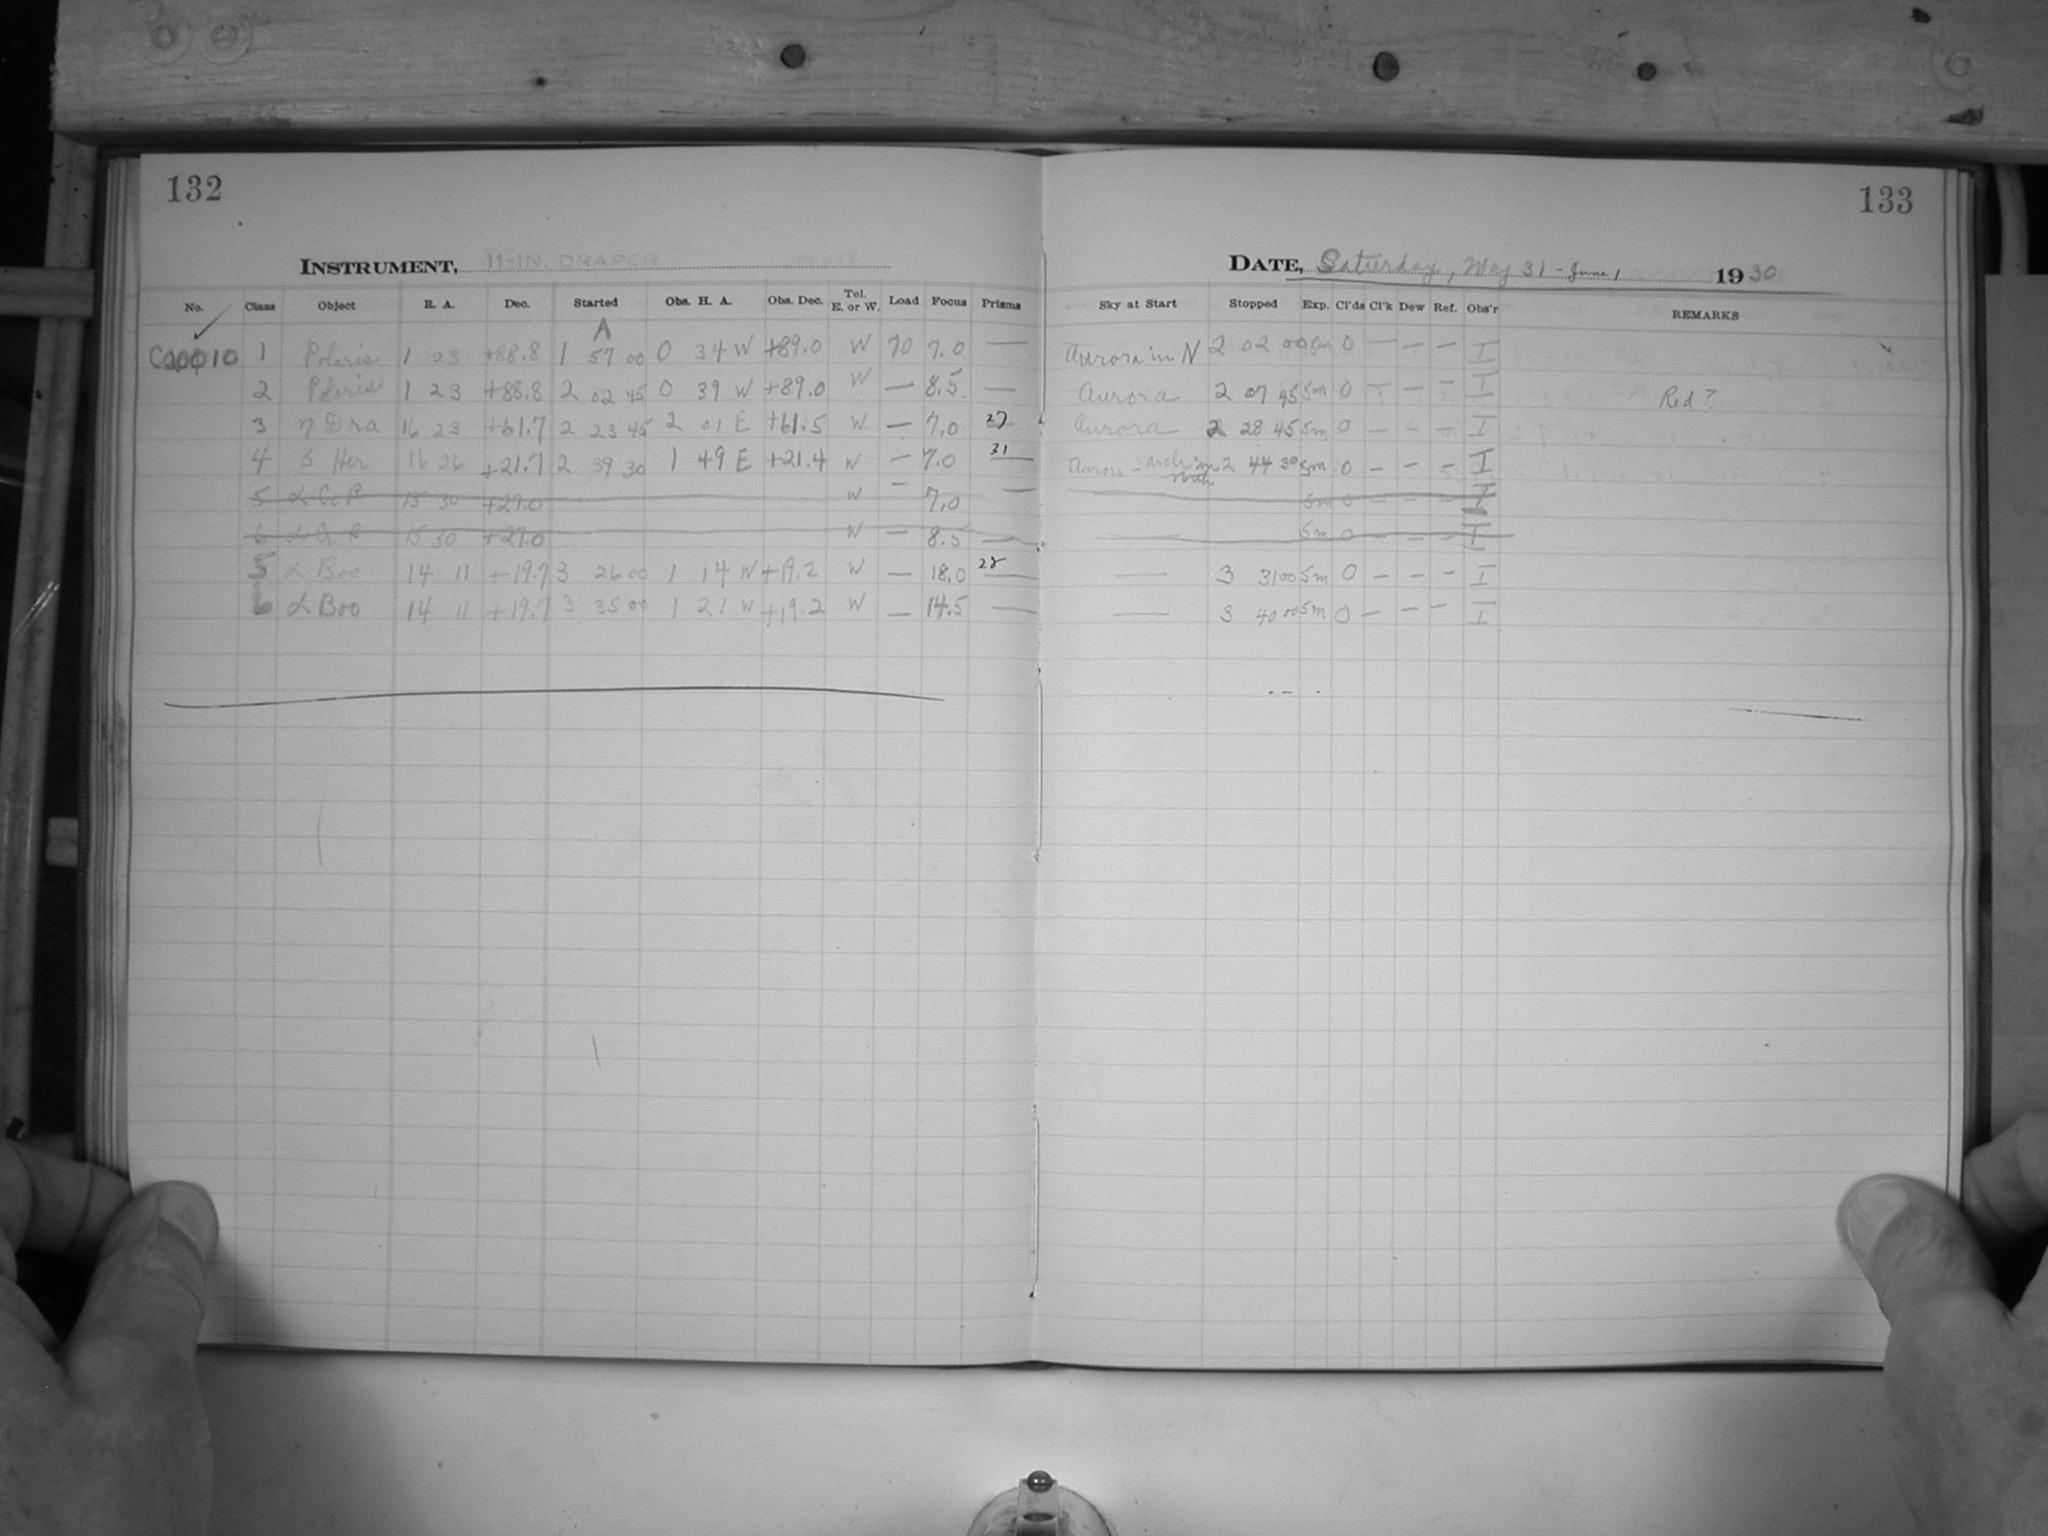 132
INSTRUMENT, 11-IN. DRAPER
No. Class Object R. A. Dec. Started Obs. H. A. Obs. Dec. Tel. E. or W. Load Focus Prisms
A
C20010 1 Polaris 1 23 +88.8 1 57 00 0 34 W +89.0 W 70 7.0 —
2 Polaris 1 23 +88.8 2 02 45 0 39 W +89.0 W — 8.5 —
3 η Dra 16 23 +61.7 2 23 45 2 01 E +61.5 W — 7.0 27
4 β Her 16 26 +21.7 2 39 30 1 49 E +21.4 W — 7.0 31
5 α Cr B 15 30 +27.0 W — 7.0 —
6 α Cr B 15 30 +27.0 W — 8.5 —
5 α Boo 14 11 +19.7 3 26 00 1 14 W +19.2 W — 18.0 28
6 α Boo 14 11 +19.7 3 35 00 1 21 W +19.2 W — 14.5 —
133
DATE, Saturday, May 31 - June 1 1930
Sky at Start Stopped Exp. Cl'ds Cl'k Dew Ref. Obs'r REMARKS
Aurora in N 2 02 00 5m 0 — — — I
Aurora 2 07 45 5m 0 — — — I Red?
Aurora 2 28 45 5m 0 — — — I
Aurora - arch in North 2 44 30 5m 0 — — — I
— 5m 0 — — — I
— 5m 0 — — — I
— 3 31 00 5m 0 — — — I
— 3 40 00 5m 0 — — — I